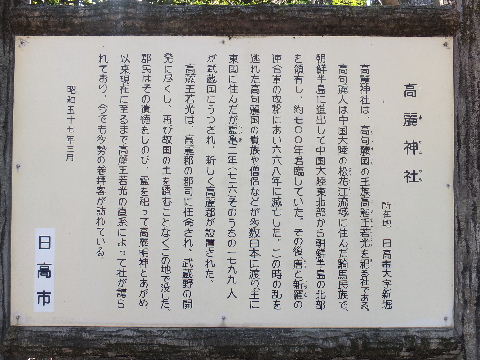 高麗神社
所在地 日高市大字新堀
高麗神社は、高句麗国の王族高麗王若光を祀る社である。
高句麗人は中国大陸の松花江流域に住んだ騎馬民族で、
朝鮮半島に進出して中国大陸東北部から朝鮮半島の北部
を領有し、約七〇〇年君臨していた。その後唐と新羅の
連合軍の攻撃にあい六六八年に滅亡した。この時の乱を
逃れた高句麗国の貴族や僧侶などが多数日本に渡り主に
東国に住んだが霊亀二年(七一六)そのうちの一七九九人
が武蔵国にうつされ、新しく高麗郡が設置された。
高麗王若光は、高麗郡の郡司に任命され、武蔵野の開
発に尽くし、再び故国の土を踏むことなくこの地で没した。
郡民はその遺徳をしのび、霊を祀って高麗明神とあがめ
以来現在に至るまで高麗王若光の直系によって社が護ら
れており、今でも多数の参拝客が訪れている。
昭和五十七年三月
日高市